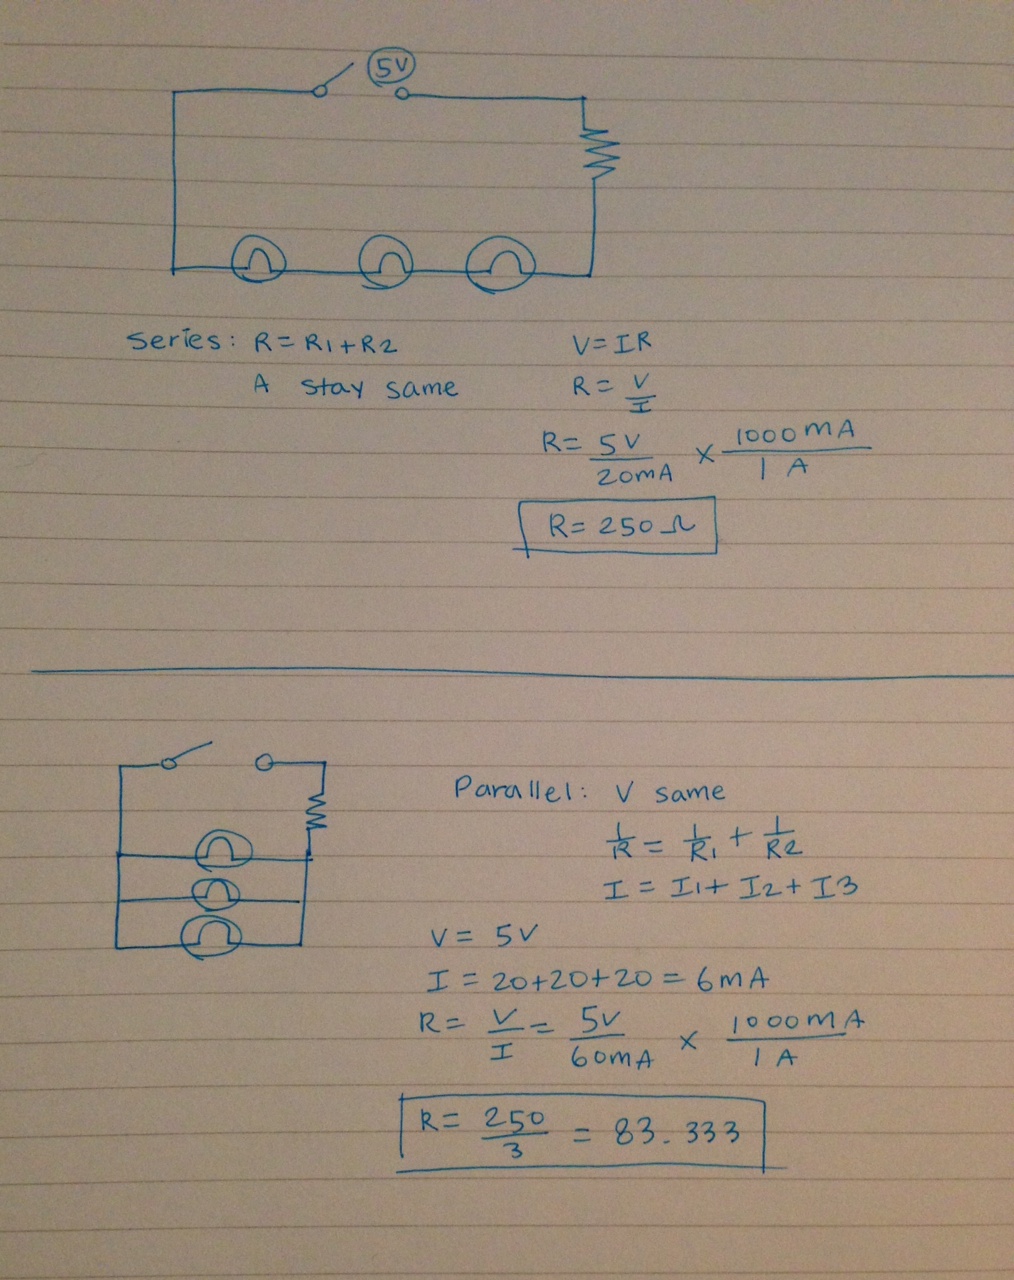 5V
Series: R = R1 + R2
A stay same
V = IR
R = V/I
R = 5V/20mA × 1000mA/1 A
R = 250 Ω
Parallel: V same
1/R = 1/R1 + 1/R2
I = I1 + I2 + I3
V = 5V
I = 20+20+20 = 6mA
R = V/I = 5V/60mA × 1000mA/1 A
R = 250/3 = 83.333